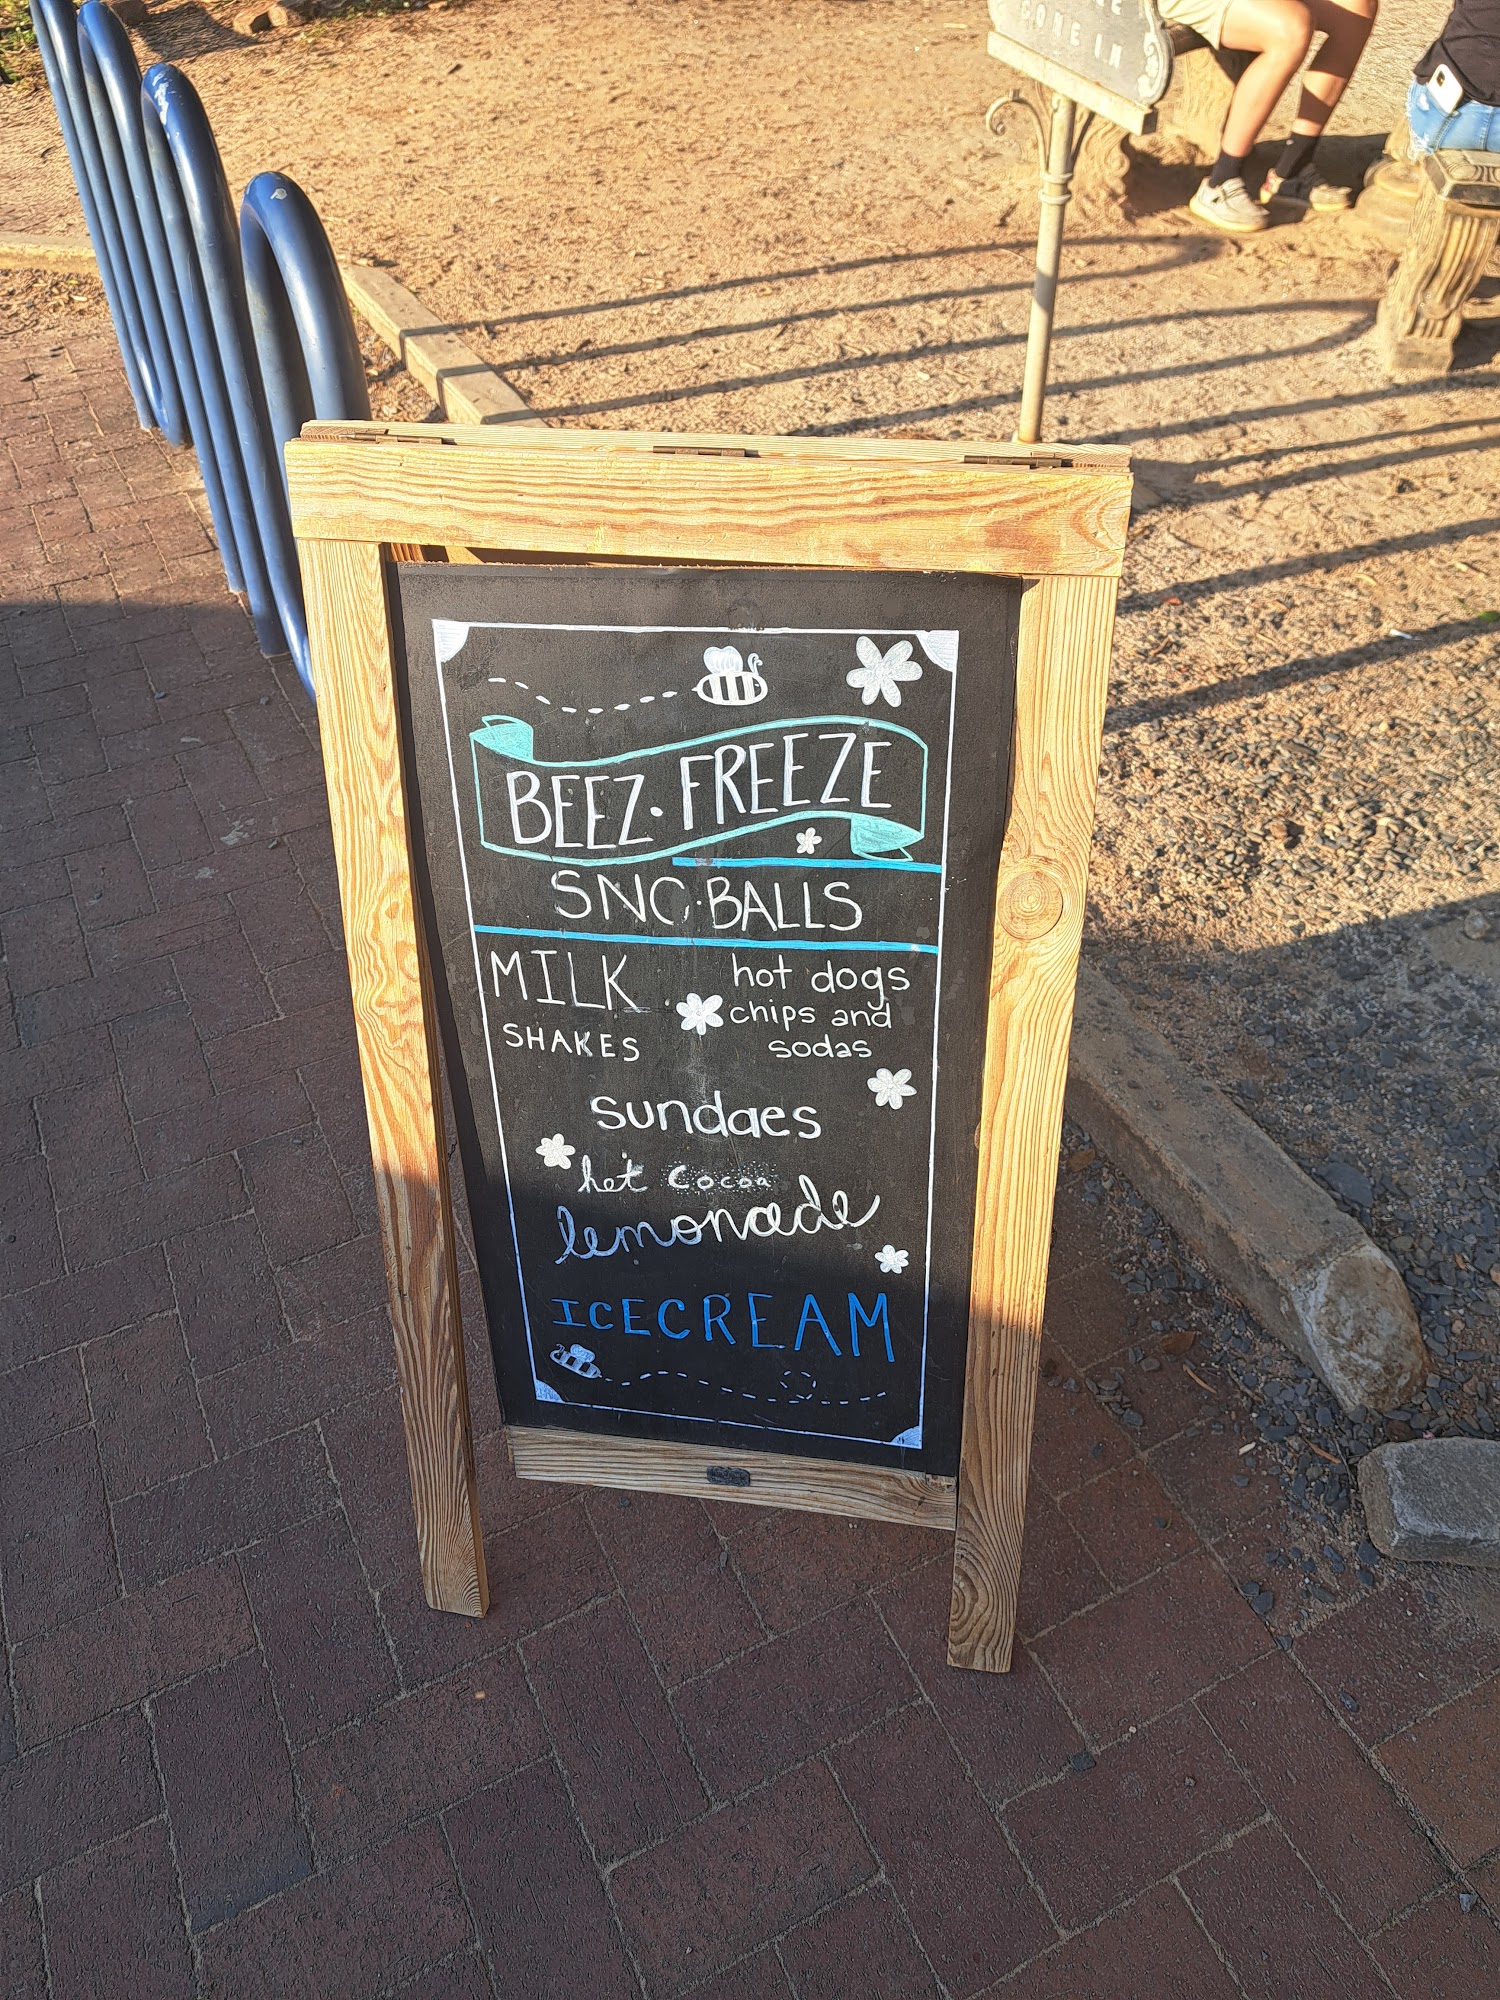 COME IN
BEEZ·FREEZE
SNO·BALLS
MILK
SHAKES
hot dogs
chips and
sodas
sundaes
hot cocoa
lemonade
ICECREAM